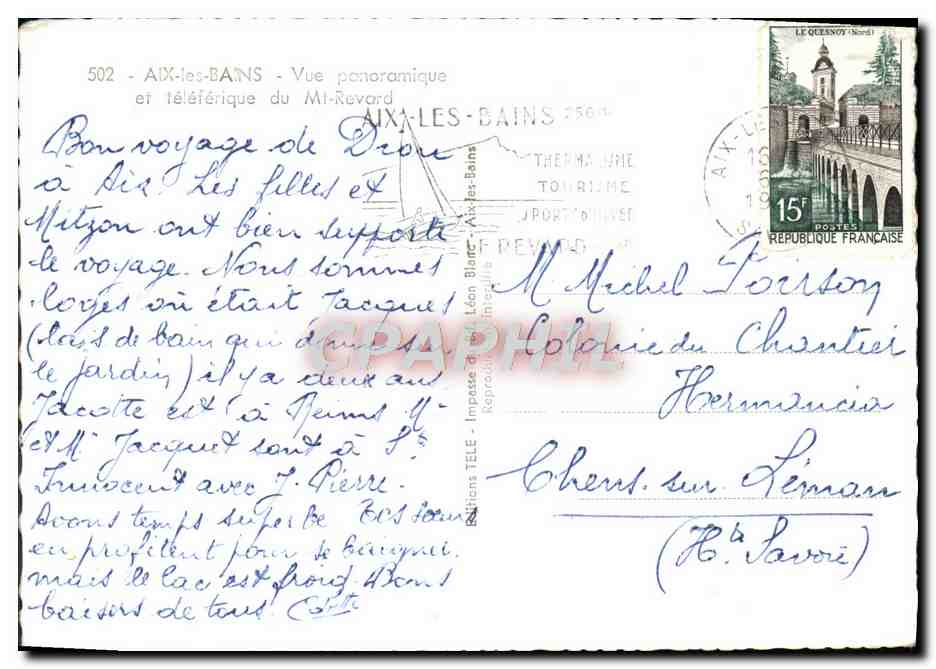 502 - AIX-les-BAINS - Vue panoramique
et téléférique du Mt-Revard
AIX-LES-BAINS 256m
THERMALISME
TOURISME
SPORTS D'HIVER
REVARD
AIX-LE
LE QUESNOY (Nord)
15F
POSTES
REPUBLIQUE FRANÇAISE
Bon voyage de
à Aix. Les filles et
Mitzou ont bien supporté
le voyage. Nous sommes
logés où était Jacques
(
de bain qui donne
le jardin) il y a deux ans
est à Reims Me
et M. Jacquet sont à St
Innocent avec J. Pierre.
Avons temps superbe tes sœurs
en profitent pour se baigner.
mais le lac est froid. Bons
baisers de tous.
Editions TELE - Impasse Léon Blanc - Aix-les-Bains
Reproduction interdite
CPAPHIL
M. Michel Poirson
Colonie du Chantier
Hermancia
Chens sur Léman
(Hte Savoie)